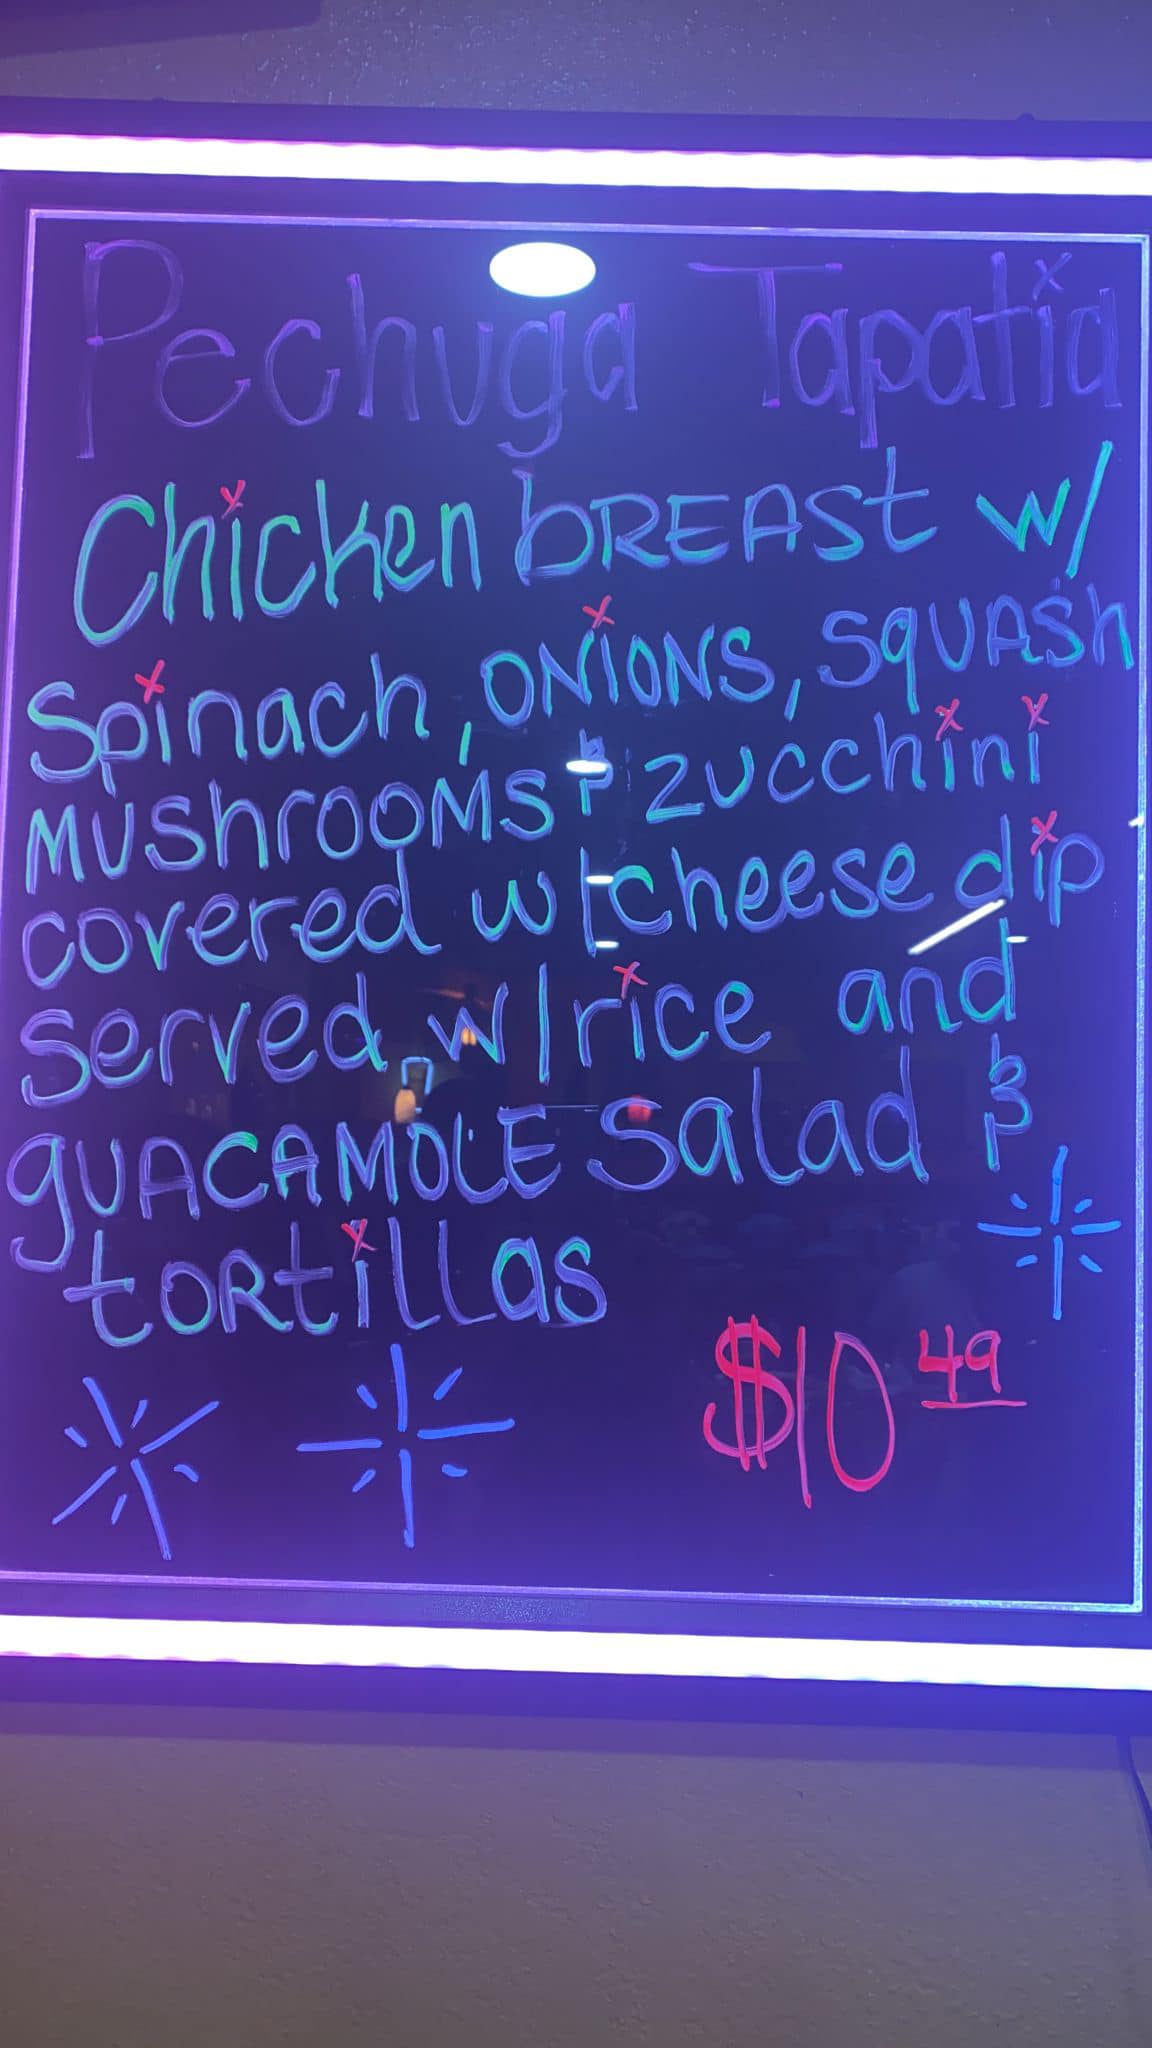 Pechuga Tapatia
Chicken bREASt w/
Spinach, ONiONS, SqUASh
MUShrOOMS & zucchini
covered w/cheese dip
served w/rice and
gUACAMOLE Salad &
tORtillas
$10 49